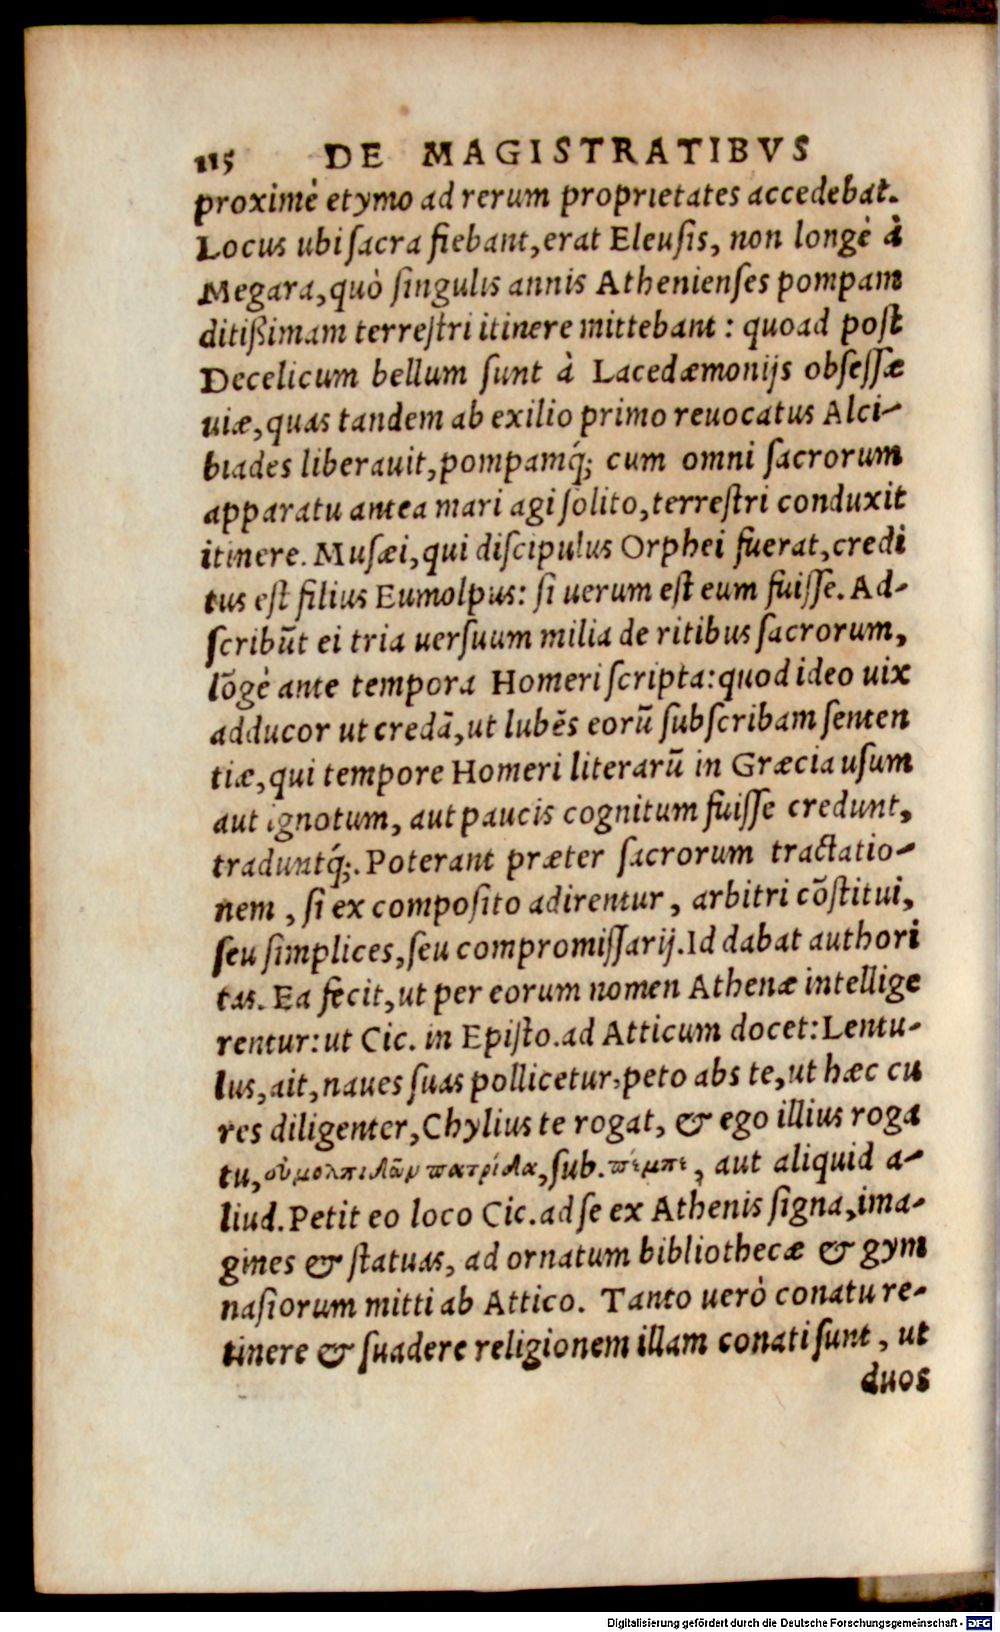 115 DE MAGISTRATIBVS
proximè etymo ad rerum proprietates accedebat.
Locus ubi sacra fiebant, erat Eleusis, non longè à
Megara, quò singulis annis Athenienses pompam
ditißimam terrestri itinere mittebant: quoad post
Decelicum bellum sunt à Lacedæmonijs obsessæ
uiæ, quas tandem ab exilio primo reuocatus Alci-
biades liberauit, pompamq́; cum omni sacrorum
apparatu antea mari agi solito, terrestri conduxit
itinere. Musæi, qui discipulus Orphei fuerat, credi
tus est filius Eumolpus: si uerum est eum fuisse. Ad-
scribūt ei tria uersuum milia de ritibus sacrorum,
lõgè ante tempora Homeri scripta: quod ideo uix
adducor ut credã, ut lubẽs eorũ subscribam senten
tiæ, qui tempore Homeri literarũ in Græcia usum
aut ignotum, aut paucis cognitum fuisse credunt,
traduntq́;. Poterant præter sacrorum tractatio-
nem, si ex composito adirentur, arbitri cõstitui,
seu simplices, seu compromissarij. Id dabat authori
tas. Ea fecit, ut per eorum nomen Athenæ intellige
rentur: ut Cic. in Episto. ad Atticum docet: Lentu-
lus, ait, naues suas pollicetur, peto abs te, ut hæc cu
res diligenter, Chylius te rogat, & ego illius roga
tu, πάτρίδα, sub. πέμπε, aut aliquid a-
liud. Petit eo loco Cic. ad se ex Athenis signa, ima-
gines & statuas, ad ornatum bibliothecæ & gym
nasiorum mitti ab Attico. Tanto uerò conatu re-
tinere & suadere religionem illam conati sunt, ut
duos
Digitalisierung gefördert durch die Deutsche Forschungsgemeinschaft - DFG